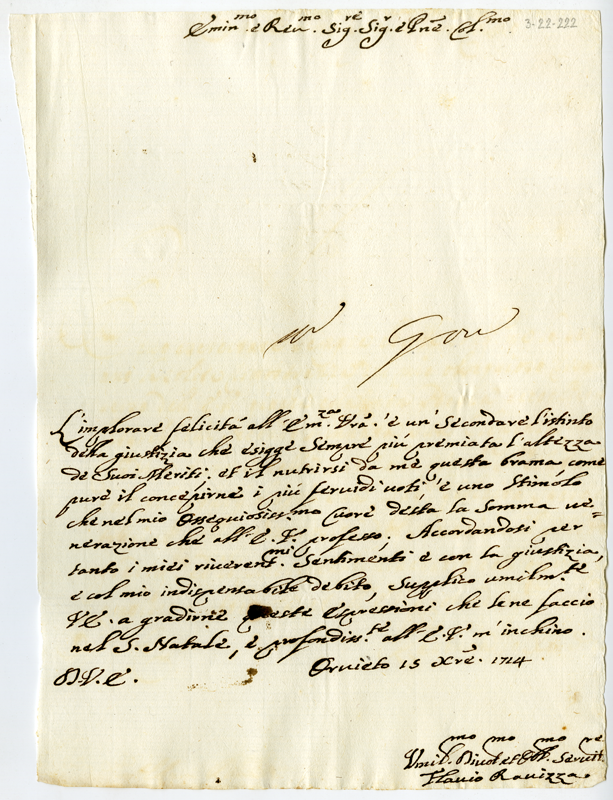 Emin.mo e Reu.mo Sig.re Sig.r e Prnē. Col.mo
3-22-222
L'implorare felicitá all'Em.za Vrā. é un' Secondare l'istinto
della giustizia che esigge Sempre piú premiata l'altezza
de Suoi Meriti. et il nutrirsi da me questa brama come
pure il concepirne i piú feruidi uoti, é uno Stimolo
che nel mio Ossequiosiss.mo cuore desta la Somma ue=
nerazione che all'E.V. professo. Accordandosi per
tanto i miei riuerent.mi Sentimenti e con la giustizia,
e col mio indispensabile debito, Supplico umilm.te
V.E. a gradirne queste Espressioni che le ne faccio
nel S. Natale, e profondiss.te all'E.V. m'inchino.
D.V.E. Oruieto 15 Xrē. 1714
Vmil.mo Diuot.mo et Obb.mo Seruit.re
Flauio Rauizza